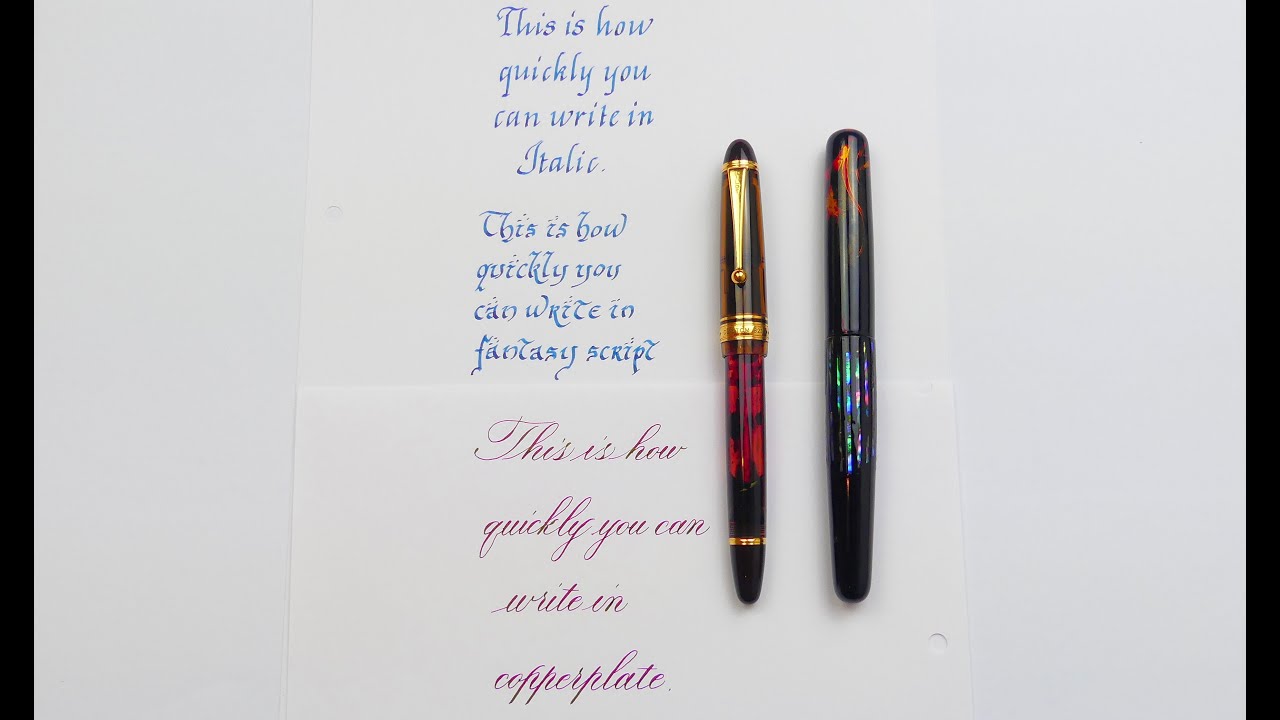 This is how
quickly you
can write in
Italic.
This is how
quickly you
can write in
fantasy script
This is how
quickly you can
write in
copperplate.